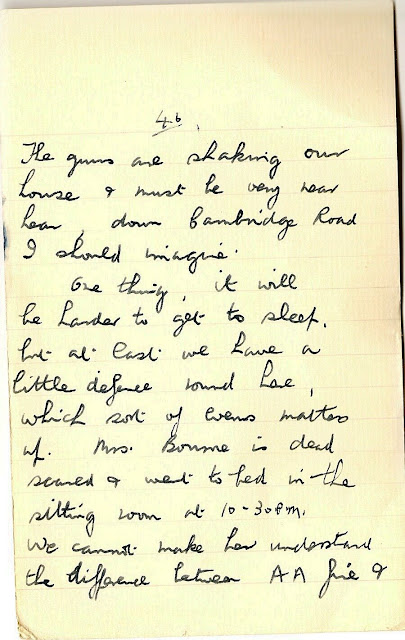 46.
The guns are shaking our
house & must be very near
hear, down Cambridge Road
I should imagine.
One thing, it will
be harder to get to sleep,
but at last we have a
little defence round here,
which sort of evens matters
up. Mrs. Bourne is dead
scared & went to bed in the
sitting room at 10-30 P.M.
We cannot make her understand
the difference between AA fire &